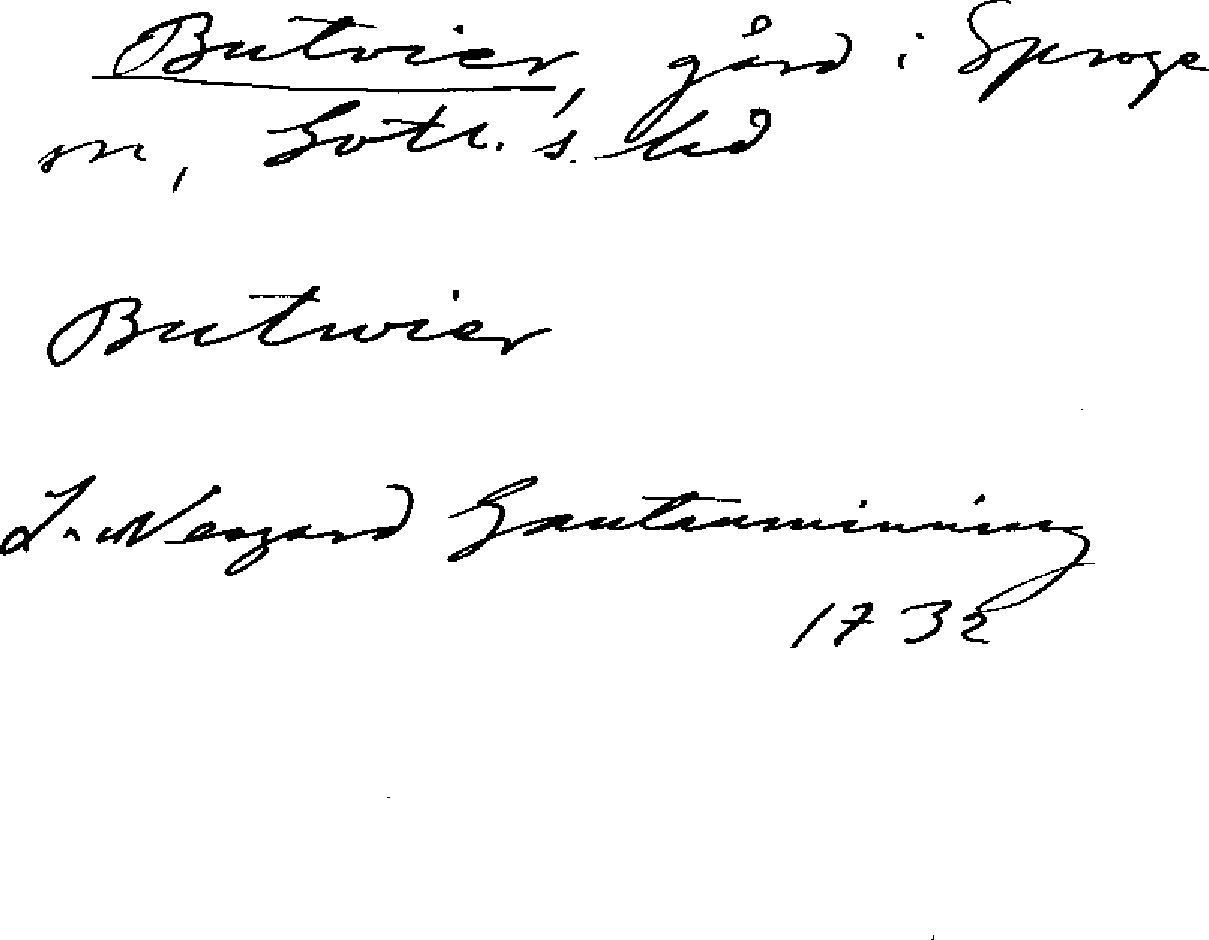 Butvier, gård i Sproge
sn, Gotl. s. hd
Butvier
J. Neogard Gautauminning
1732